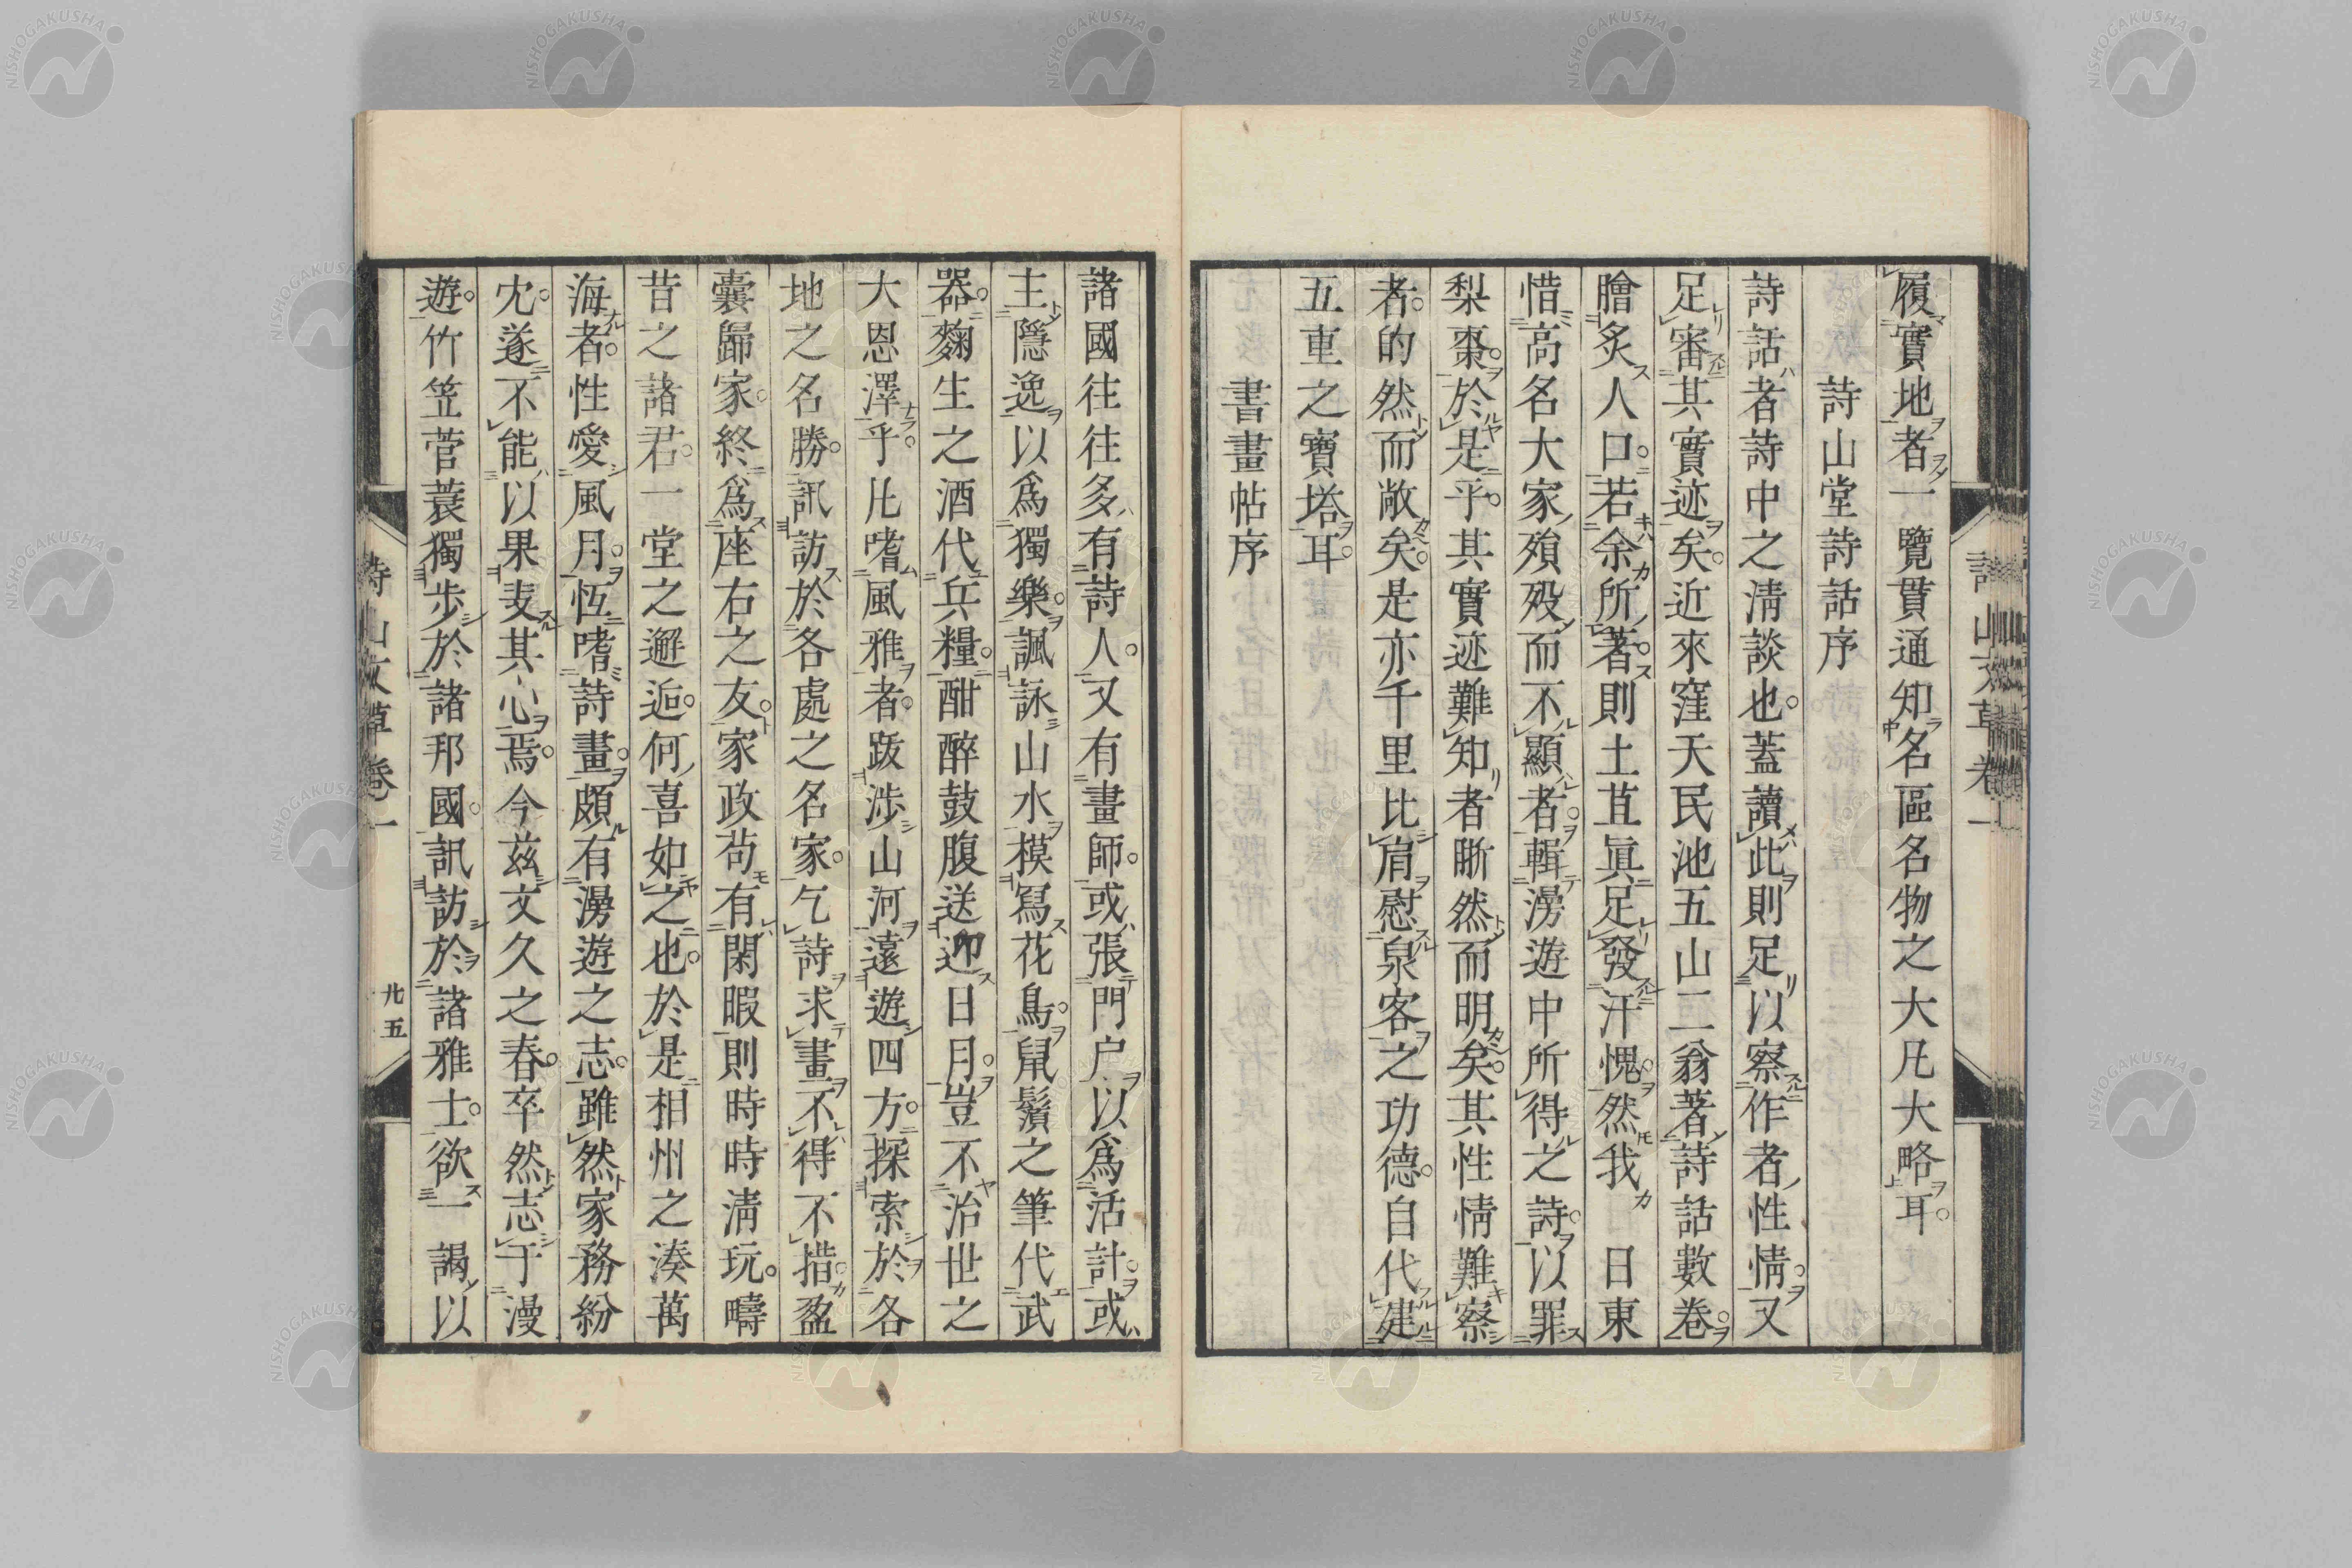 履實地者一覽貫通知名區名物之大凡大略耳。
詩山堂詩話序
詩話者詩中之淸談也。蓋讀此則足以察作者性情。又
足審其實迹矣。近來窪天民池五山二翁著詩話數卷。
膾炙人口。若余所著。則土苴眞足發汗愧。然我日東
惜高名大家殞歿而不顯者。輯漫遊中所得之詩。以罪
梨棗。於是乎。其實迹難知者晣然而明矣。其性情難察
者。的然而敞矣。是亦千里比肩慰泉客之功德。自代建
五重之寶塔耳。
書畫帖序
諸國往往多有詩人。又有畫師。或張門戶以爲活計。或
主隱逸以爲獨樂。諷詠山水模寫花鳥。鼠鬚之筆代武
器。麴生之酒代兵糧。酣醉鼓腹送迎日月。豈不治世之
大恩澤乎。凡嗜風雅者。跋涉山河遠遊四方。探索於各
地之名勝。訊訪於各處之名家。乞詩求畫不得不措。盈
囊歸家。終爲座右之友。家政苟有閑暇則時時淸玩。疇
昔之諸君。一堂之邂逅。何喜如之也。於是相州之湊萬
海者。性愛風月。恆嗜詩畫。頗有漫遊之志。雖然家務紛
冘。遂不能以果其心焉。今玆文久之春。卒然志于漫
遊。竹笠菅蓑獨步於諸邦國。訊訪於諸雅士。欲一謁以
詩山文草卷一
詩山文草卷一 廿五
NISHOGAKUSHA